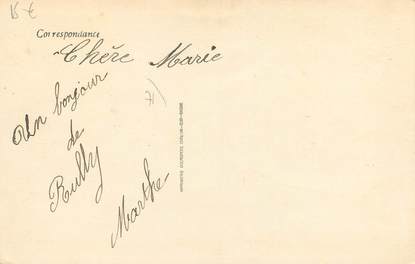 15 €
Correspondance
Chère Marie
Un bonjour
de
Rully
Marthe
71